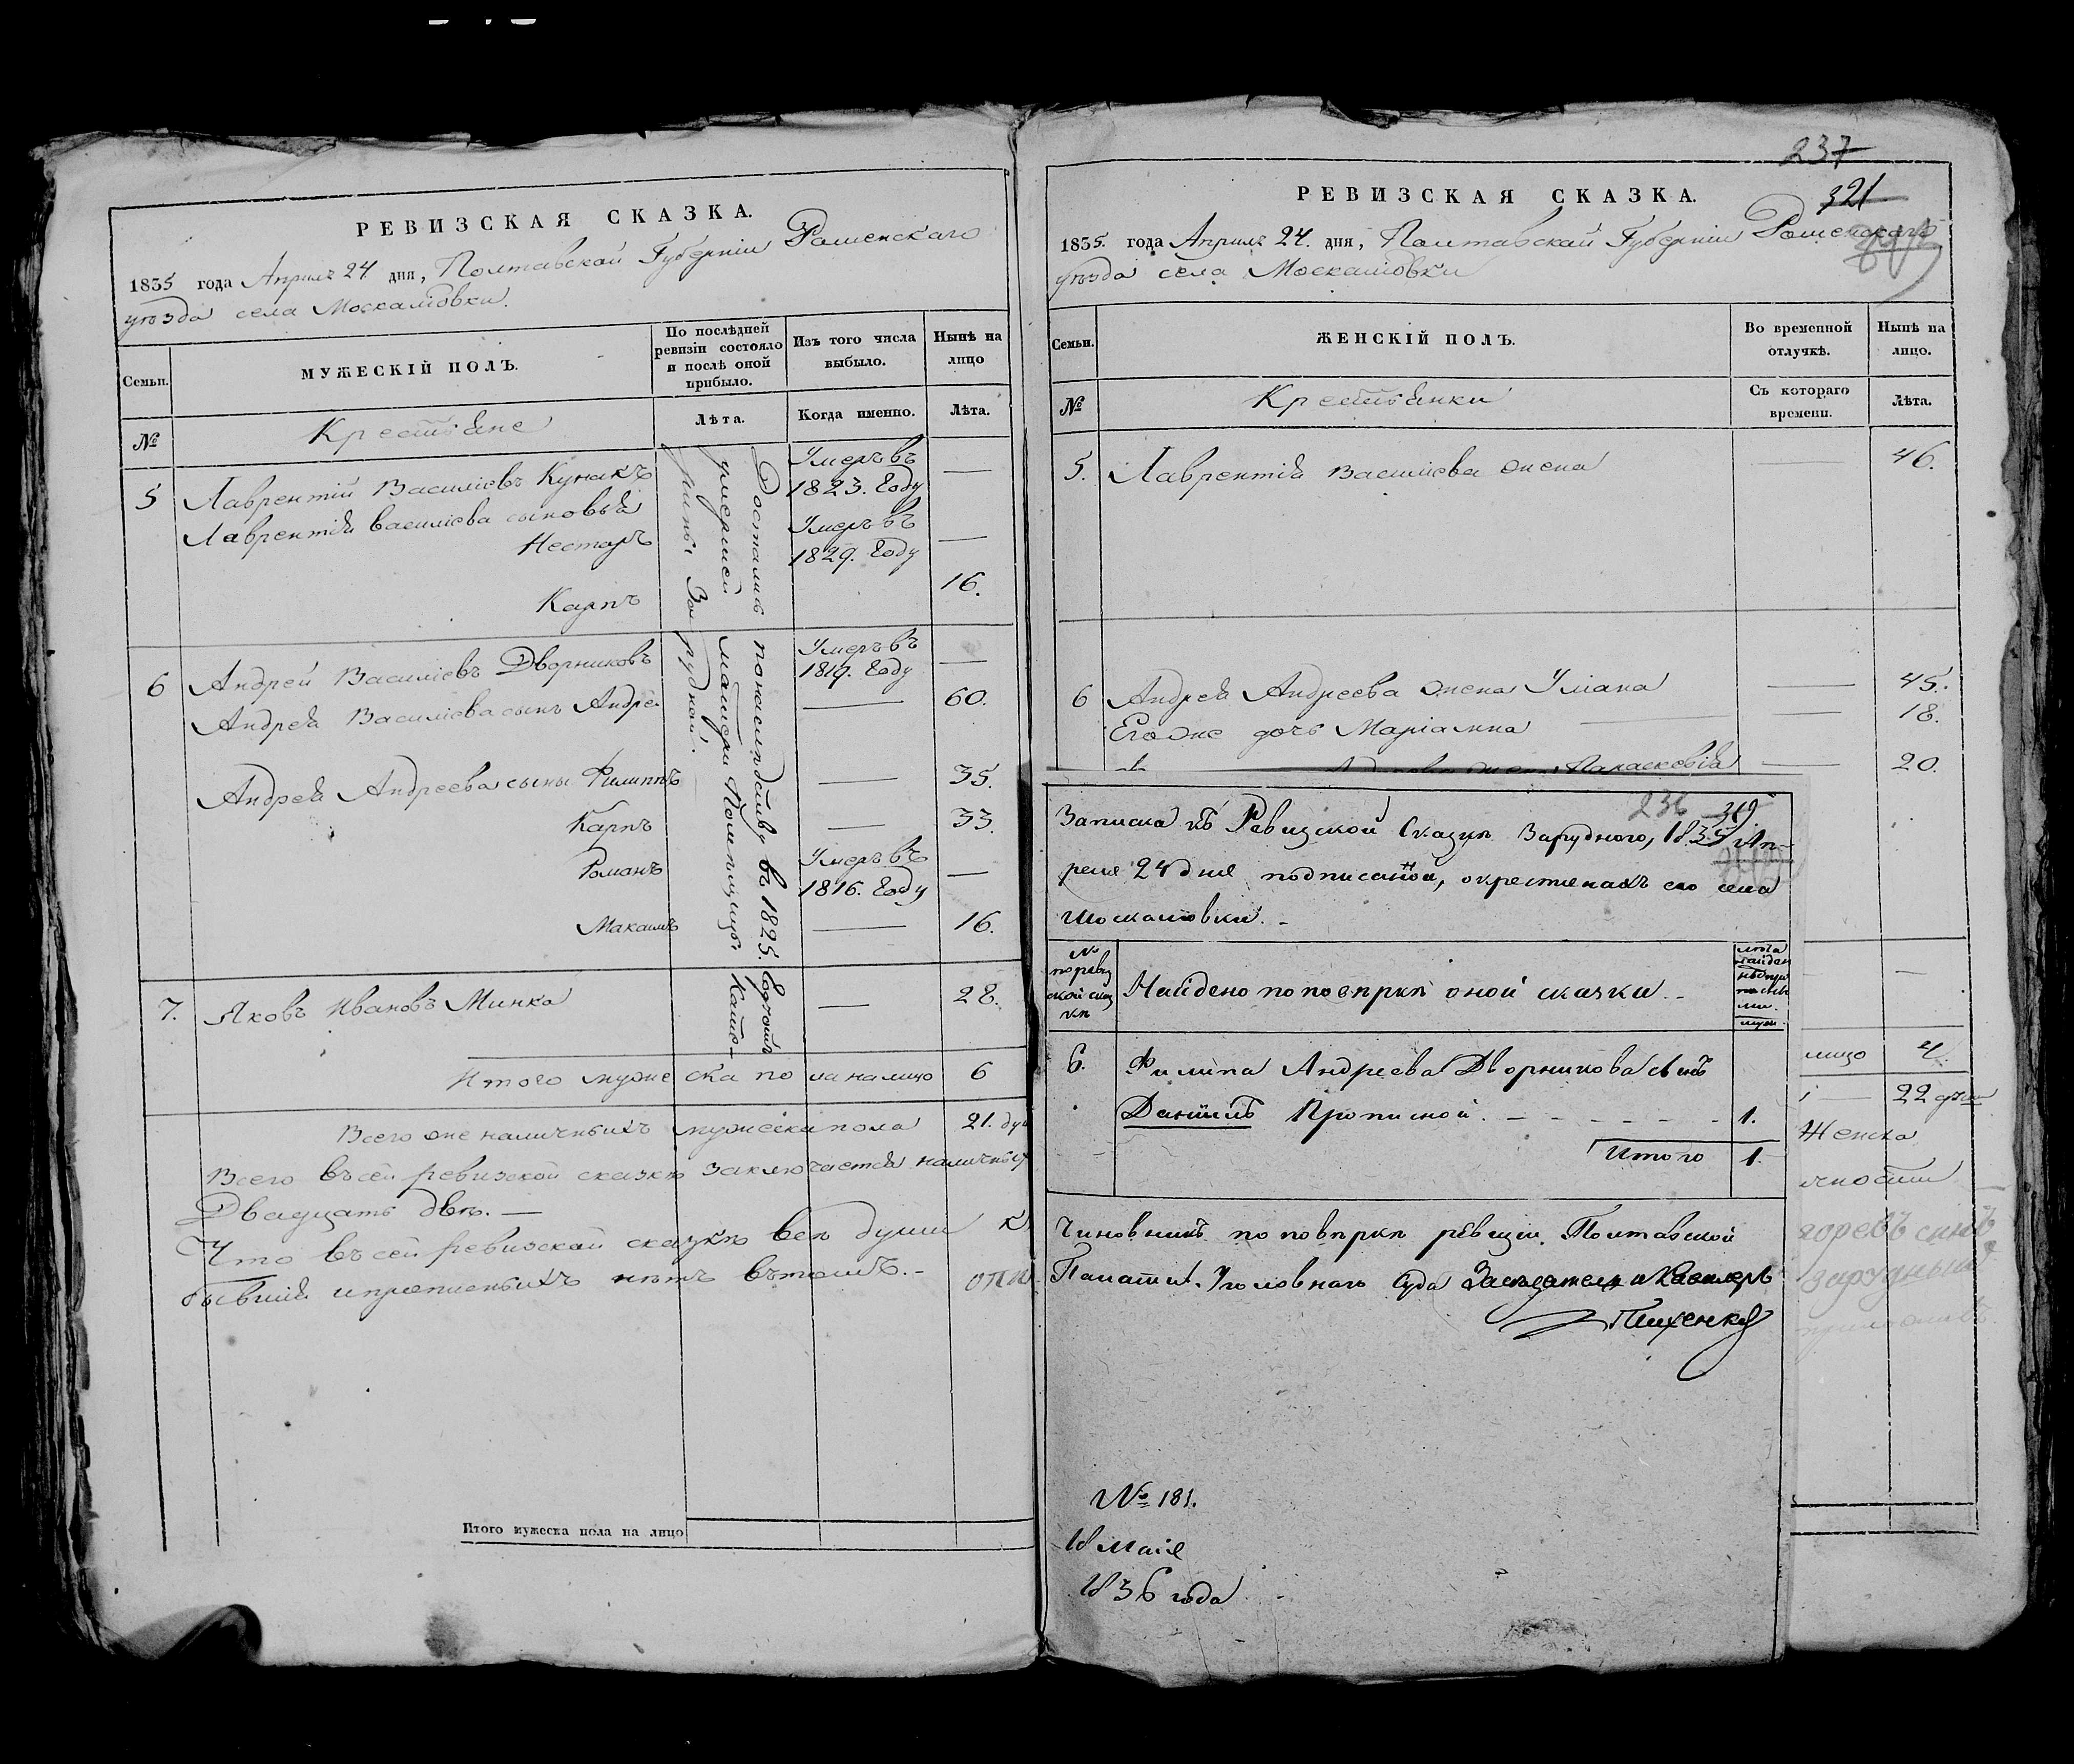 РЕВИЗСКАЯ СКАЗКА.
1835 года Апрѣля 24 дня, Полтавской Губерніи Роменскаго
уѣзда села Москалiовки.
Семьи.
МУЖЕСКІЙ ПОЛЪ.
По послѣдней
ревизіи состояло
и послѣ оной
прибыло.
Изъ того числа
выбыло.
Нынѣ на
лицо
№
Крестьяне
Лѣта.
Когда именно.
Лѣта.
5 Лаврентій Василіевъ Кунакъ
Умеръ въ
1823. Году
Лаврентія василіева сыновья
Несторъ
Умеръ въ
1829. Году
Карпъ 16.
6 Андрей Василіевъ Дворниковъ
Умеръ въ
1819. Году
Андрея Василіева сынъ Андре 60.
Андрея Андреева сыны Филиппъ 35.
Карпъ 33.
Романъ
Умеръ въ
1816. Году
Макаимъ 16.
7. Яковъ Ивановъ Минка 28.
Достались по наслѣдству въ 1825. Годѣ отъ
умершей матери Катe-
рины Зарудной.
Итого мужеска пола на лицо 6
Всего же наличныхъ мужеска пола 21. ду
Всего въ сей ревизской сказкѣ заключается наличныхъ
Двадцать двѣ.
Что въ сей ревизской сказкѣ всѣ души к
бывшія и прописныхъ нѣтъ въ томъ.
Итого мужеска пола на лицо
237
321
РЕВИЗСКАЯ СКАЗКА.
1835. года Апрѣля 24. дня, Полтавской Губерніи Роменскаго
уѣзда села Москалiовки
Семьи.
ЖЕНСКІЙ ПОЛЪ.
Во временной
отлучкѣ.
Нынѣ на
лицо.
№
Крестьянки
Съ котораго
времени.
Лѣта.
5. Лаврентія Василіева жена 46.
6 Андрея Андреева жена Уліана 45.
Его же дочь Маріамна 18.
жена Параскевія 20.
236 319
Записка къ Ревизской Сказкѣ Зарудного, 1835 Ап-
реля 24 дня подписанной, о крестьянахъ его села
Москалювки.
№
по ревиз
ской сказ
кѣ
Найдено по повѣркѣ оной сказки.
6. Филипа Андреева Дворникова сынъ
Даніилъ Прописной. 1.
Итого 1.
Чиновникъ по повѣркѣ ревизіи, Полтавской
Палаты Уголовнаго Суда Заседатель и Кавалеръ
№ 181.
18 Маія
1836 года
лицо 4.
22 душ
Женска